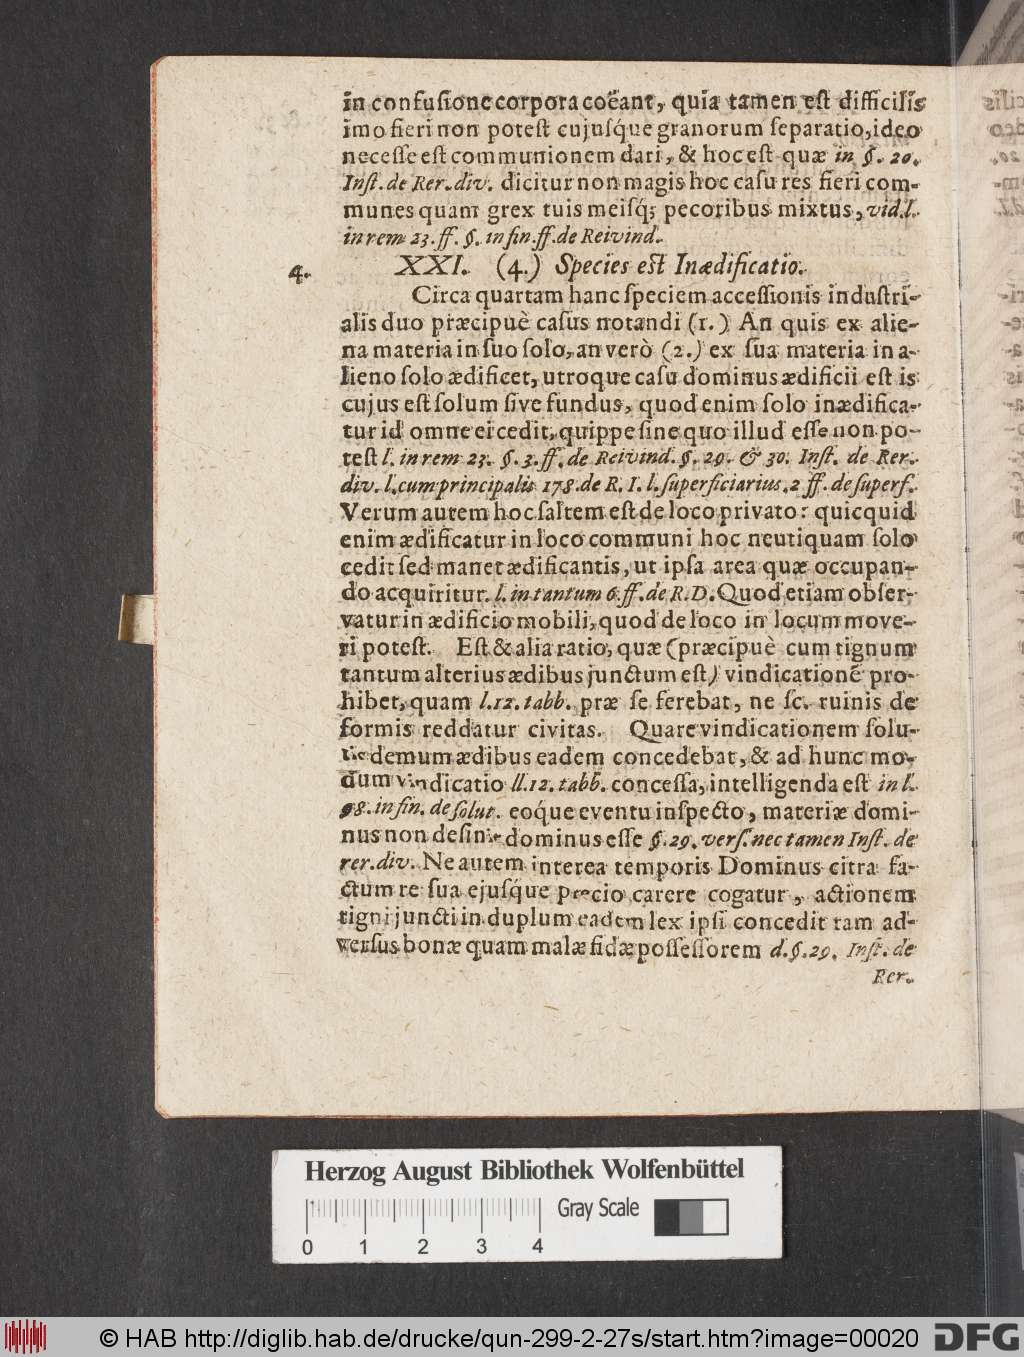 in confusione corpora coëant, quia tamen est difficilis
imo fieri non potest cujusq́ue granorum separatio, ideo
necesse est communionem dari, & hoc est quæ in §. 20.
Inst. de Rer. div. dicitur non magis hoc casu res fieri com-
munes quam grex tuis meisq́; pecoribus mixtus, vid. l.
in rem 23. ff. §. in fin. ff. de Reivind.
4.
XXI. (4.) Species est Inædificatio.
Circa quartam hanc speciem accessionis industri-
alis duo præcipuè casus notandi (1.) An quis ex alie-
na materia in suo solo, an verò (2.) ex sua materia in a-
lieno solo ædificet, utroque casu dominus ædificii est is
cujus est solum sive fundus, quod enim solo inædifica-
tur id omne ei cedit, quippe sine quo illud esse non po-
test l. in rem 23. §. 3. ff. de Reivind. §. 29. & 30. Inst. de Rer.
div. l. cum principalis 178. de R. I. l. superficiarius. 2 ff. de superf.
Verum autem hoc saltem est de loco privato: quicquid
enim ædificatur in loco communi hoc neutiquam solo
cedit sed manet ædificantis, ut ipsa area quæ occupan-
do acquiritur. l. in tantum 6. ff. de R. D. Quod etiam obser-
vatur in ædificio mobili, quod de loco in locum move-
ri potest. Est & alia ratio, quæ (præcipuè cum tignum
tantum alterius ædibus junctum est) vindicationē pro-
hibet, quam l. 12. tabb. præ se ferebat, ne sc. ruinis de
formis reddatur civitas. Quare vindicationem solu-
tis demum ædibus eadem concedebat, & ad hunc mo-
dum vindicatio ll. 12. tabb. concessa, intelligenda est in l.
98. in fin. de solut. eoq́ue eventu inspecto, materiæ domi-
nus non desinit dominus esse §. 29. vers. nec tamen Inst. de
rer. div. Ne autem interea temporis Dominus citra fa-
ctum re sua ejusq́ue precio carere cogatur, actionem
tigni juncti in duplum eadem lex ipsi concedit tam ad-
versus bonæ quam malæ fidæ possessorem d. §. 29. Inst. de
Rer.
Herzog August Bibliothek Wolfenbüttel
Gray Scale
0 1 2 3 4
© HAB http://diglib.hab.de/drucke/qun-299-2-27s/start.htm?image=00020 DFG